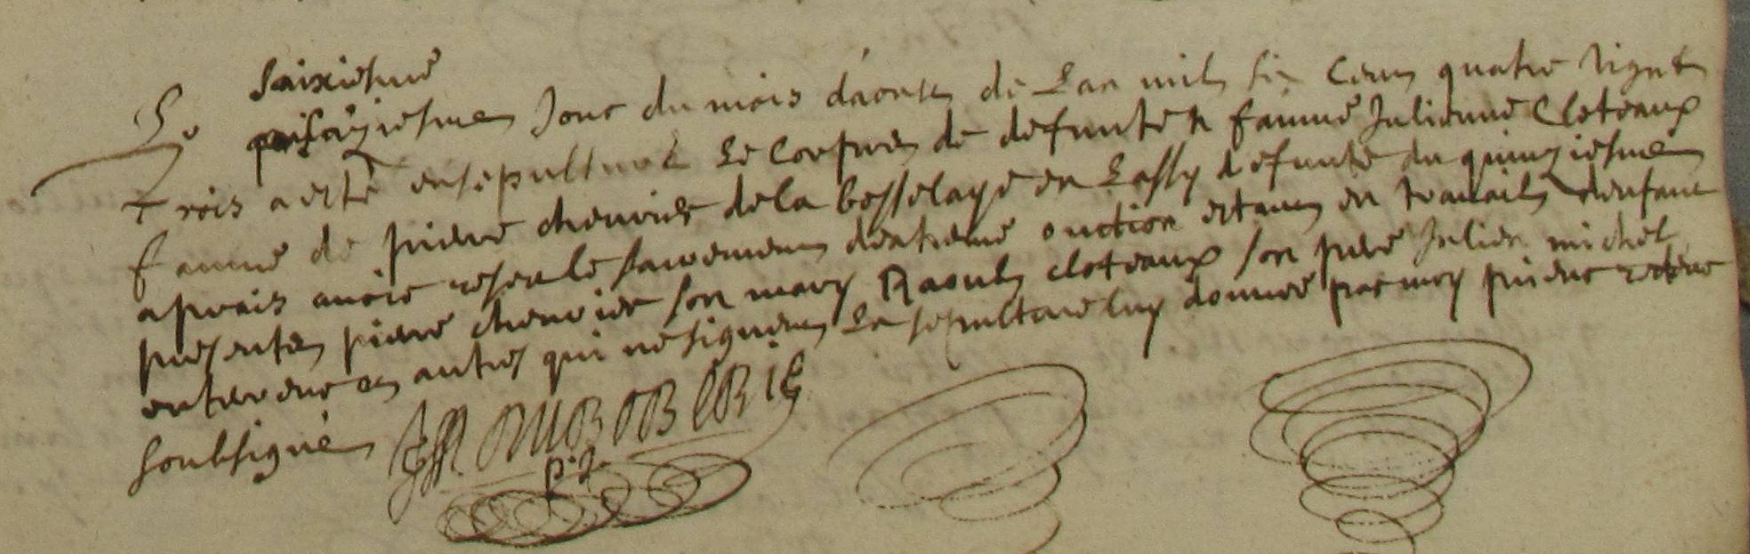 saixiesme
Le jour du mois daoust de Lan mil six Cens quatre vignt
Trois a esté ensepulturé Le Corps de defunte famme Julienne Cloteaux
famme de piere chevrier de la bosselaye en Lassy defunte du quinziesme
apres avoir resu le sacrement dextreme onction estant en travail denfant
presentes piere chevrier son mary Raoul cloteaux son pere Julien michel
et autres qui ne signent La sepulture luy donnée par moy priere
soubsigné
p.